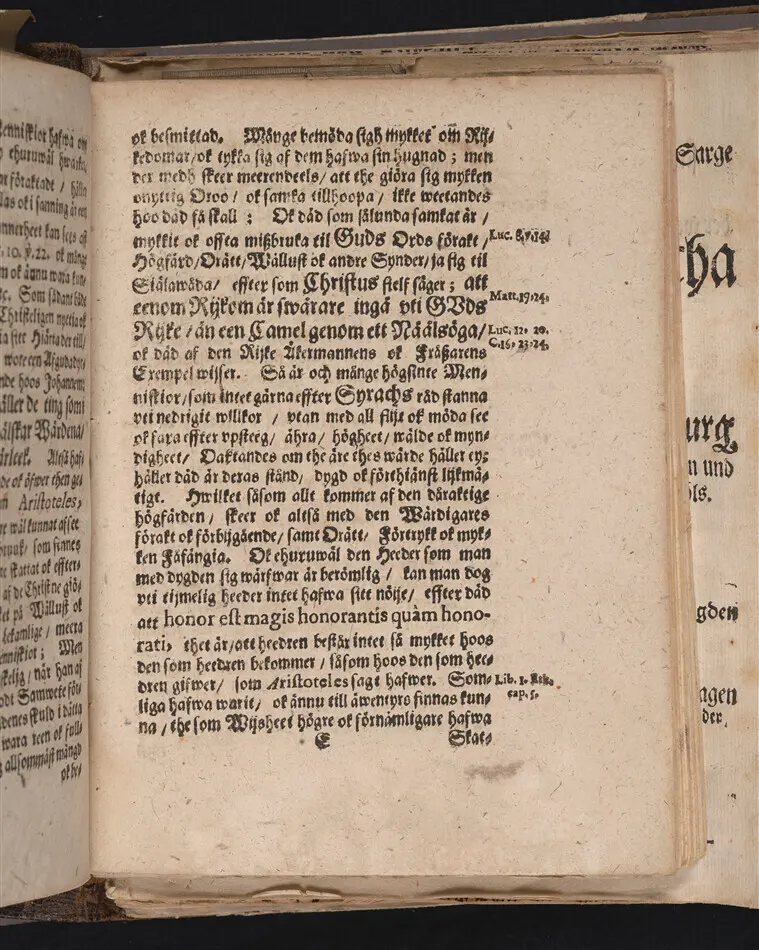 ok besmittad. Månge bemöda sigh mykket om Rij-
kedomar/ok tykka sig af dem hafwa sin hugnad ; men
der medh skeer meerendeels/ att the giöra sig mykken
onyttig Oroo / ok samka tillhoopa / ikke weetandes
hoo däd få skall : Ok däd som sålunda samkat är /
mykkit ok offta mißbruka til Guds Ords förakt /
Högfärd/Orätt/Wällust ok andre Synder/ja sig til
Siälawåda/ effter som Christus sielf säger; att
eenom Rijkom är swårare ingå vti GVds
Rijke / än een Camel genom ett Näälsöga/
ok däd af den Rijke Åkermannens ok Fråßarens
Exempel wijser. Så är och månge högsinte Men-
niskior/som intet gärna effter Syrachs råd stanna
vti nedrigit willkor / vtan med all flijt ok möda see
ok fara effter vpsteeg/ ähra/ högheet/ wälde ok myn-
digheet/ Oaktandes om the äre thes wärde häller ey;
häller däd är deras stånd/ dygd ok förthiänst lijkmä-
tigt. Hwilket såsom allt kommer af den däraktige
högfärden / skeer ok altså med den Wärdigares
förakt ok förbijgående/ samt Orätt/ Förtrykk ok myk-
ken Fåfängia. Ok ehuruwäl den Heeder som man
med dygden sig wärfwar är berömlig / kan man dog
vti tijmelig heeder intet hafwa sitt nöije/ effter däd
att honor est magis honorantis quàm hono-
rati, thet är/att heedren består intet så mykket hoos
den som heedren bekommer / såsom hoos den som hee-
dren gifwer/ som Aristoteles sagt hafwer. Som-
liga hafwa warit/ ok ännu till äwentyrs finnas kun-
na / the som Wijsheet högre ok förnämligare hafwa
E Skat-
Luc. 8. v. 14.
Matt. 19. 24.
Luc. 12. 20.
C. 16. 23. 24.
Lib. 1. Eth.
cap. 5.
Aristoteles,
Sarge
ha
urg
n und
gden
agen
der,